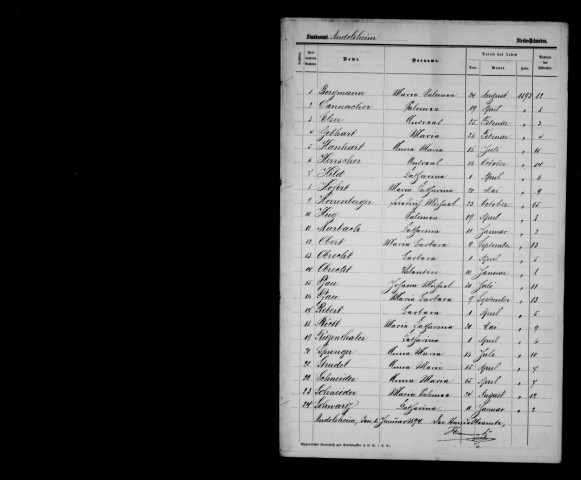 Standesamt Andolsheim
Sterbe-Urkunden.
Name. Vorname. Datum des Todes
Tag. Monat. Jahr.
1 Bergmann Maria Salomea 24 August 1893 12
2 Dannacher Salomea 19 April " 8
3 Elser Andreas 25 Februar " 3
4 Gebhart Maria 26 Februar " 4
5 Hanhart Anna Maria 14 Juli " 10
6 Herrscher Andreas 14 October " 14
7 Hild Catharina 1 April " 6
8 Höfert Maria Catharina 20 Mai " 9
9 Horrenberger Friedrich Michael 23 October " 15
10 Hug Salomea 19 April " 8
11 Murbach Catharina 11 Januar " 2
12 Obert Maria Barbara 9 September " 13
13 Obrecht Barbara 1 April " 5
14 Obrecht Valentin 10 Januar " 1
15 Pfau Johann Michael 30 Juli " 11
16 Pfau Maria Barbara 9 September " 13
17 Rebert Barbara 1 April " 5
18 Riett Maria Catharina 20 Mai " 9
19 Ritzenthaler Catharina 1 April " 6
20 Sprenger Anna Maria 14 Juli " 10
21 Strudel Anna Maria 15 April " 7
22 Schneider Anna Maria 15 April " 7
23 Schneider Maria Salomea 24 August " 12
24 Schwartz Catharina 11 Januar " 2
Andolsheim, den 1. Januar 1894. Der Standesbeamte,